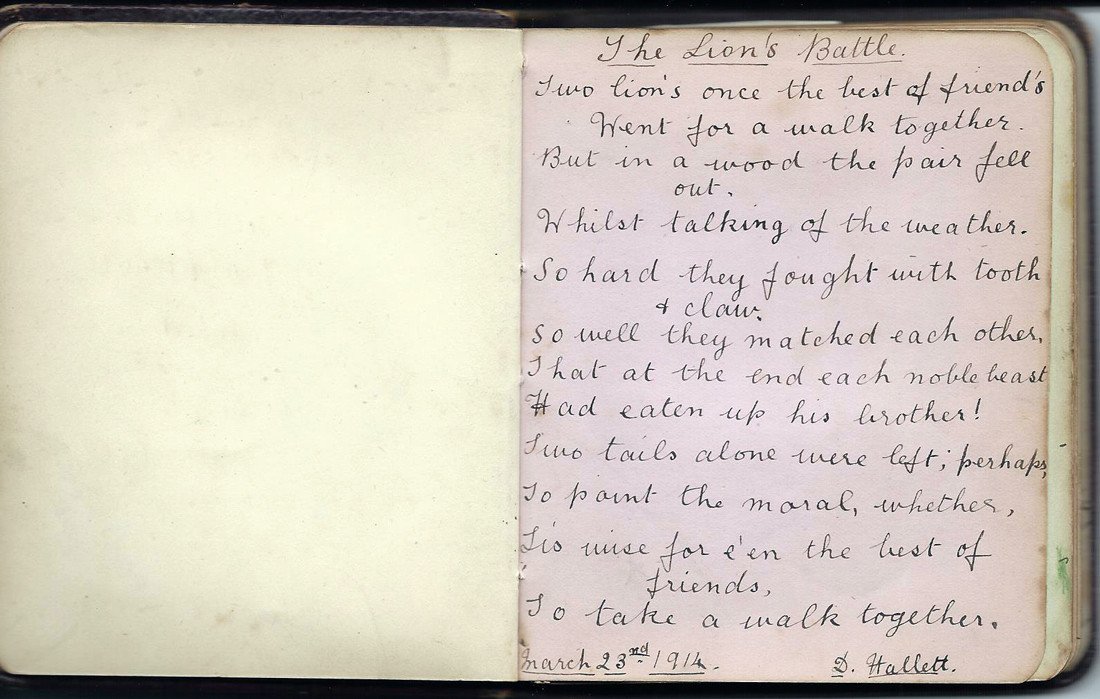 The Lion's Battle.
Two lion's once the best of friend's
Went for a walk together.
But in a wood the pair fell
out.
Whilst talking of the weather.
So hard they fought with tooth
& claw.
So well they matched each other,
That at the end each noble beast
Had eaten up his brother!
Two tails alone were left; perhaps,
To point the moral, whether,
Tis wise for e'en the best of
friends,
To take a walk together.
March 23nd 1914. D. Hallett.